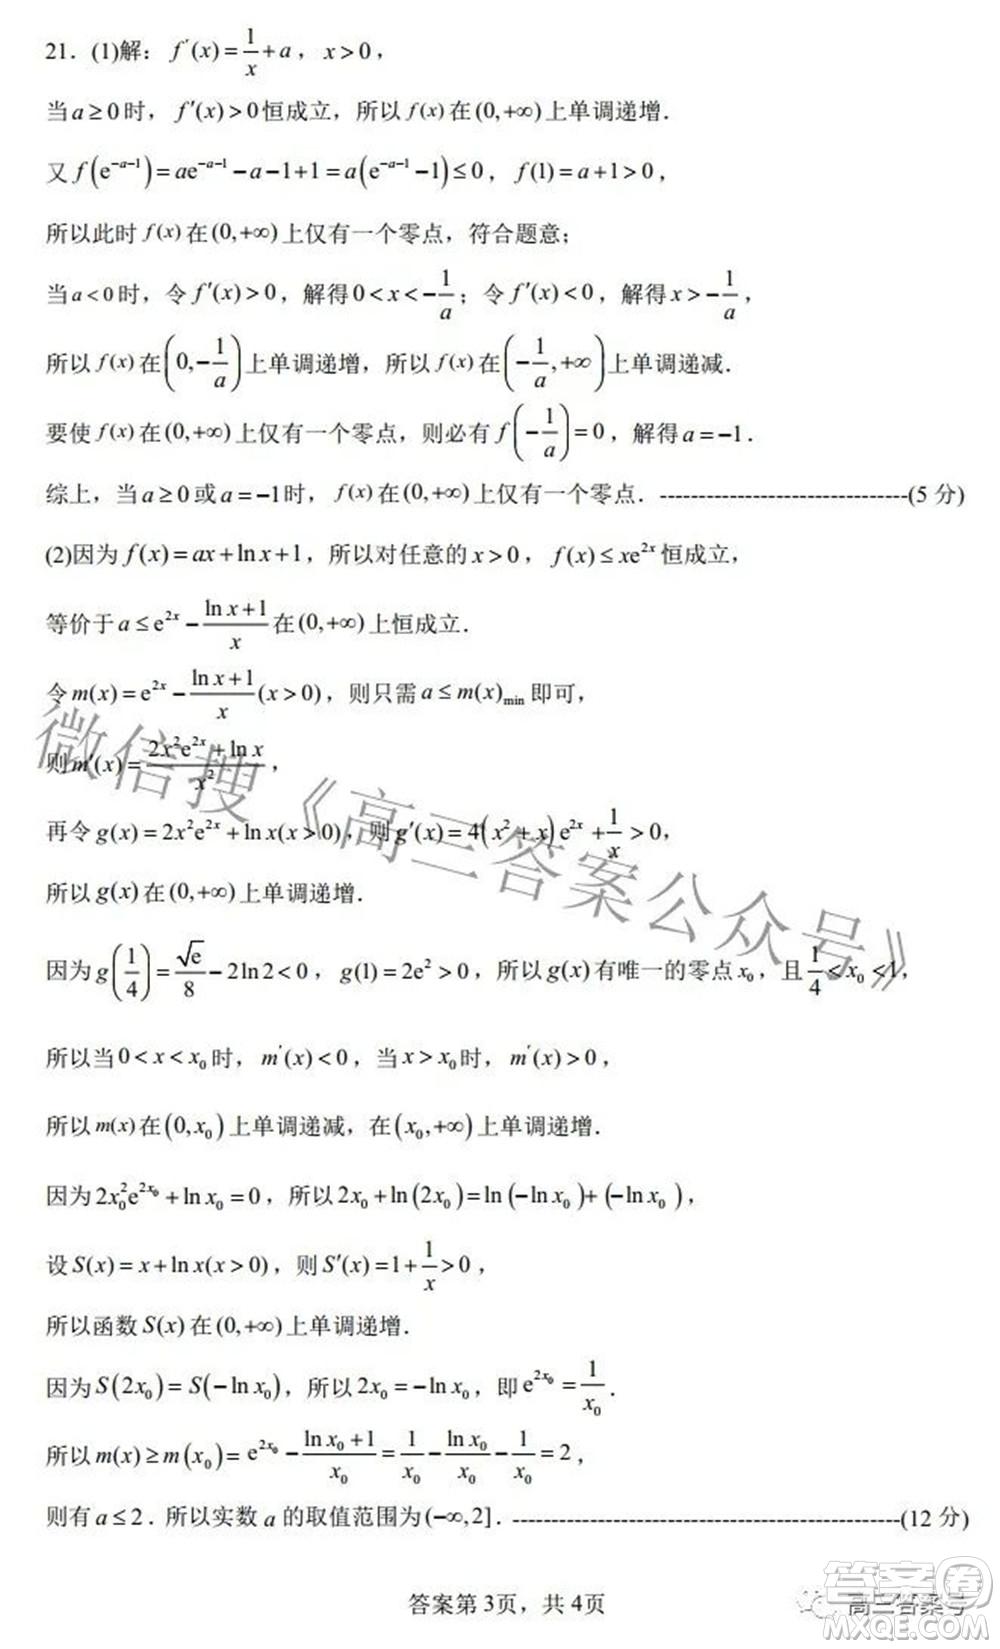 21. (1)解： f′(x)=1/x+a， x>0，
当 a≥0 时， f′(x)>0 恒成立，所以 f(x) 在 (0,+∞) 上单调递增．
又 f(e^{-a-1})=ae^{-a-1}-a-1+1=a(e^{-a-1}-1)≤0， f(1)=a+1>0，
所以此时 f(x) 在 (0,+∞) 上仅有一个零点，符合题意；
当 a<0 时，令 f′(x)>0，解得 0<x<-1/a；令 f′(x)<0，解得 x>-1/a，
所以 f(x) 在 (0,-1/a) 上单调递增，所以 f(x) 在 (-1/a,+∞) 上单调递减．
要使 f(x) 在 (0,+∞) 上仅有一个零点，则必有 f(-1/a)=0，解得 a=-1．
综上，当 a≥0 或 a=-1 时， f(x) 在 (0,+∞) 上仅有一个零点．--------------------------------(5 分)
(2)因为 f(x)=ax+ln x+1，所以对任意的 x>0， f(x)≤xe^{2x} 恒成立，
等价于 a≤e^{2x}-(ln x+1)/x 在 (0,+∞) 上恒成立．
令 m(x)=e^{2x}-(ln x+1)/x (x>0)，则只需 a≤m(x)_{min} 即可，
则 m′(x)=(2x²e^{2x}+ln x)/x²，
再令 g(x)=2x²e^{2x}+ln x(x>0)，则 g′(x)=4(x²+x)e^{2x}+1/x>0，
所以 g(x) 在 (0,+∞) 上单调递增．
因为 g(1/4)=√e/8-2ln2<0， g(1)=2e²>0，所以 g(x) 有唯一的零点 x₀，且 1/4<x₀<1，
所以当 0<x<x₀ 时， m′(x)<0，当 x>x₀ 时， m′(x)>0，
所以 m(x) 在 (0,x₀) 上单调递减，在 (x₀,+∞) 上单调递增．
因为 2x₀²e^{2x₀}+ln x₀=0，所以 2x₀+ln(2x₀)=ln(-ln x₀)+(-ln x₀)，
设 S(x)=x+ln x(x>0)，则 S′(x)=1+1/x>0，
所以函数 S(x) 在 (0,+∞) 上单调递增．
因为 S(2x₀)=S(-ln x₀)，所以 2x₀=-ln x₀，即 e^{2x₀}=1/x₀．
所以 m(x)≥m(x₀)=e^{2x₀}-(ln x₀+1)/x₀=1/x₀-ln x₀/x₀-1/x₀=2，
则有 a≤2．所以实数 a 的取值范围为 (-∞,2]．--------------------------------------------------(12 分)
答案第 3页，共 4页
微信搜《高三答案公众号》
高三答案号
答案圈
MXQE.COM